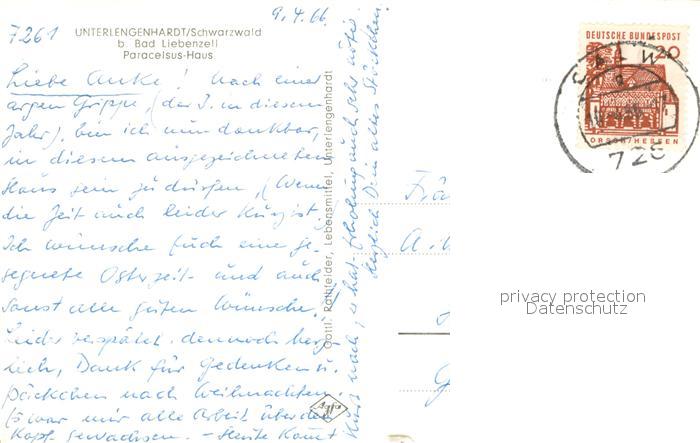 9.4.66
7261 UNTERLENGENHARDT/Schwarzwald
b. Bad Liebenzell
Paracelsus-Haus
Liebe Anke! Nach einer
argen Grippe, (der 3. in diesem
Jahr), bin ich nun dankbar,
in diesem ausgezeichneten
Haus sein zu dürfen, (Wenn
die Zeit auch leider kurz ist.
Ich wünsche Euch eine ge-
segnete Osterzeit und auch
sonst alle guten Wünsche!
Leider verspätet, dennoch herz-
lich, Dank für Gedenken u.
Päckchen nach Weihnachten
Es war mir alle Arbeit über den
Kopf gewachsen. - Heute kommt
Kurt nach, er hat Erholung auch sehr nötig.
Herzlich Dein altes Stöckchen.
Gottl. Rathfelder, Lebensmittel, Unterlengenhardt
Agfa
DEUTSCHE BUNDESPOST
20
LORSCH/HESSEN
CALW
726
Frä
privacy protection
Datenschutz